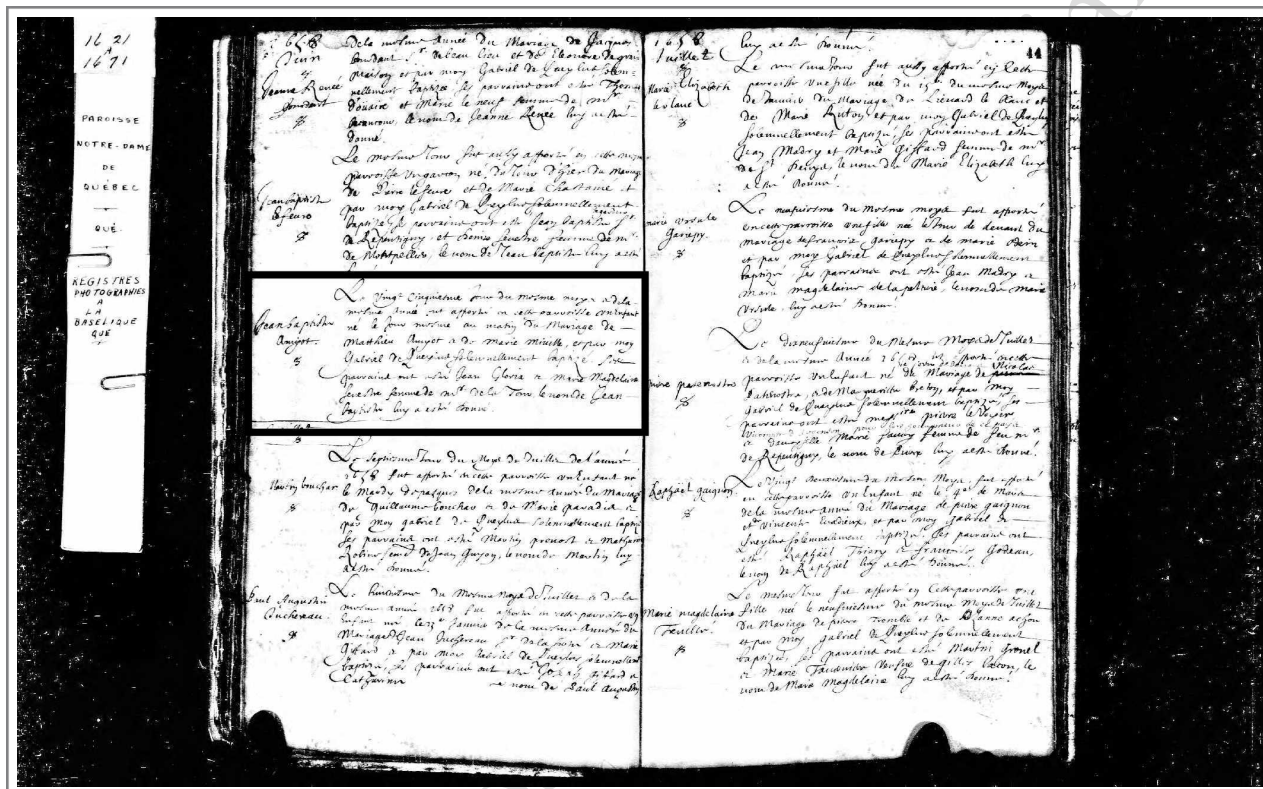 16 21
A
16 71
PAROISSE
NOTRE-DAME
DE
QUÉBEC
QUÉ.
REGISTRES
PHOTOGRAPHIES
A
LA
BASELIQUE
QUÉ
1658
Juin
De la mesme Année du Mariage de Jacques
et de Eleonore de grand
maison et par moy Gabriel de Queylus solem-
Jeanne Renée
nellement baptizée ses parrains ont esté
Douaire et Marie le neuf femme de mr
le nom de Jeanne Renée luy a esté
donné.
Le mesme Jour fut aussy apporté en cette mesme
parroisse un garcon né du Jour d'hier du Mariage
Jean baptiste
le feure
de Pierre le feure et de Marie Chastaigné et
par moy Gabriel de Queylus solemnellement
baptizé, ses parrains ont esté Jean baptiste
de Repentigny et Denise Sevestre femme de mr
de Montpellier, le nom de Jean baptiste luy a esté
Le vingt cinquiesme Jour du mesme moys et de la
mesme année fut apporté en cette parroisse un Enfant
Jean baptiste
Amyot.
né le Jour mesme au matin du Mariage de
Matthieu Amyot et de Marie Miuille, et par moy
Gabriel de Queylus solemnellement baptizé. Ses
parrains ont esté Jean Gloria et Marie Magdelaine
Sevestre femme de mr de la Tour, le nom de Jean
baptiste luy a esté donné.
Le Septiesme Jour du Moys de Juillet de l'année
1658 fut apporté en cette parroisse un Enfant né
Martin bouchar
le Mardy de pasques de la mesme Année du Mariage
de Guillaume bouchar et de Marie paradis et
par moy gabriel de Queylus solemnellement baptizé
Ses parrains ont esté Martin prevost et
femme de Jean Guyon, le nom de Martin luy
a esté donné.
Paul Augustin
Juchereau
Le huictiesme du Mesme moys de Juillet et de la
mesme année 1658 fut apporté en cette parroisse un
Enfant né le Janvier de la mesme Année du
Mariage de Jean Juchereau Sr de la ferté et Marie
Giffard et par moy Gabriel de Queylus solemnellement
baptizé, ses parrains ont esté
Catharine le nom de Paul Augustin
1658
Juillet
44
luy a esté donné.
Le mesme Jour fut aussy apporté en cette
Marie Elizabeth
le blanc
parroisse une fille née du 15e du mesme Moys
de Janvier du Mariage de Liénard le blanc et
de Marie Rutoy et par moy Gabriel de Queylus
solemnellement baptizée, ses parrains ont esté
Jean Madry et Marie Giffard femme de mr
de St Denys, le nom de Marie Elizabeth luy
a esté donné.
Le neufuiesme du Mesme moys fut apporté
marie ursule
Gariepy.
en cette parroisse une fille née le Jour de deuant du
mariage de francois gariepy et de marie Oudin
et par moy Gabriel de Queylus solemnellement
baptizée, ses parrains ont esté Jean Madry et
marie magdelaine de la peltrie, le nom de marie
Ursule luy a esté donné.
Le dixneufuiesme du Mesme Moys de Juillet
et de la mesme Année 1658 fut apporté en cette
parroisse un Enfant né du Mariage de Nicolas
Patenostre, et de Marguerite breton, et par moy
gabriel de Queylus solemnellement baptizé, ses
parrains ont esté messire pierre le Voyer
Marie favery femme de feu mr
de Repentigny, le nom de Pierre luy a esté donné.
Raphaël gaignon
Le vingt deuxiesme du Mesme Moys, fut apporté
en cette parroisse un Enfant né le 9e de Mars
de la mesme année du Mariage de pierre gaignon
et Vincente Desvarieux, et par moy gabriel de
Queylus solemnellement baptizé, ses parrains ont
esté Raphaël Thiery et francoise godeau,
le nom de Raphaël luy a esté donné.
Le mesme Jour fut apporté en Cette parroisse une
Marie magdelaine
fille née le neufuiesme du mesme Moys de Juillet
du Mariage de pierre
et par moy gabriel de Queylus solemnellement
baptizée, ses parrains ont esté Martin grouel
et Marie veufve de gilles bacon, le
nom de Marie Magdelaine luy a esté donné.